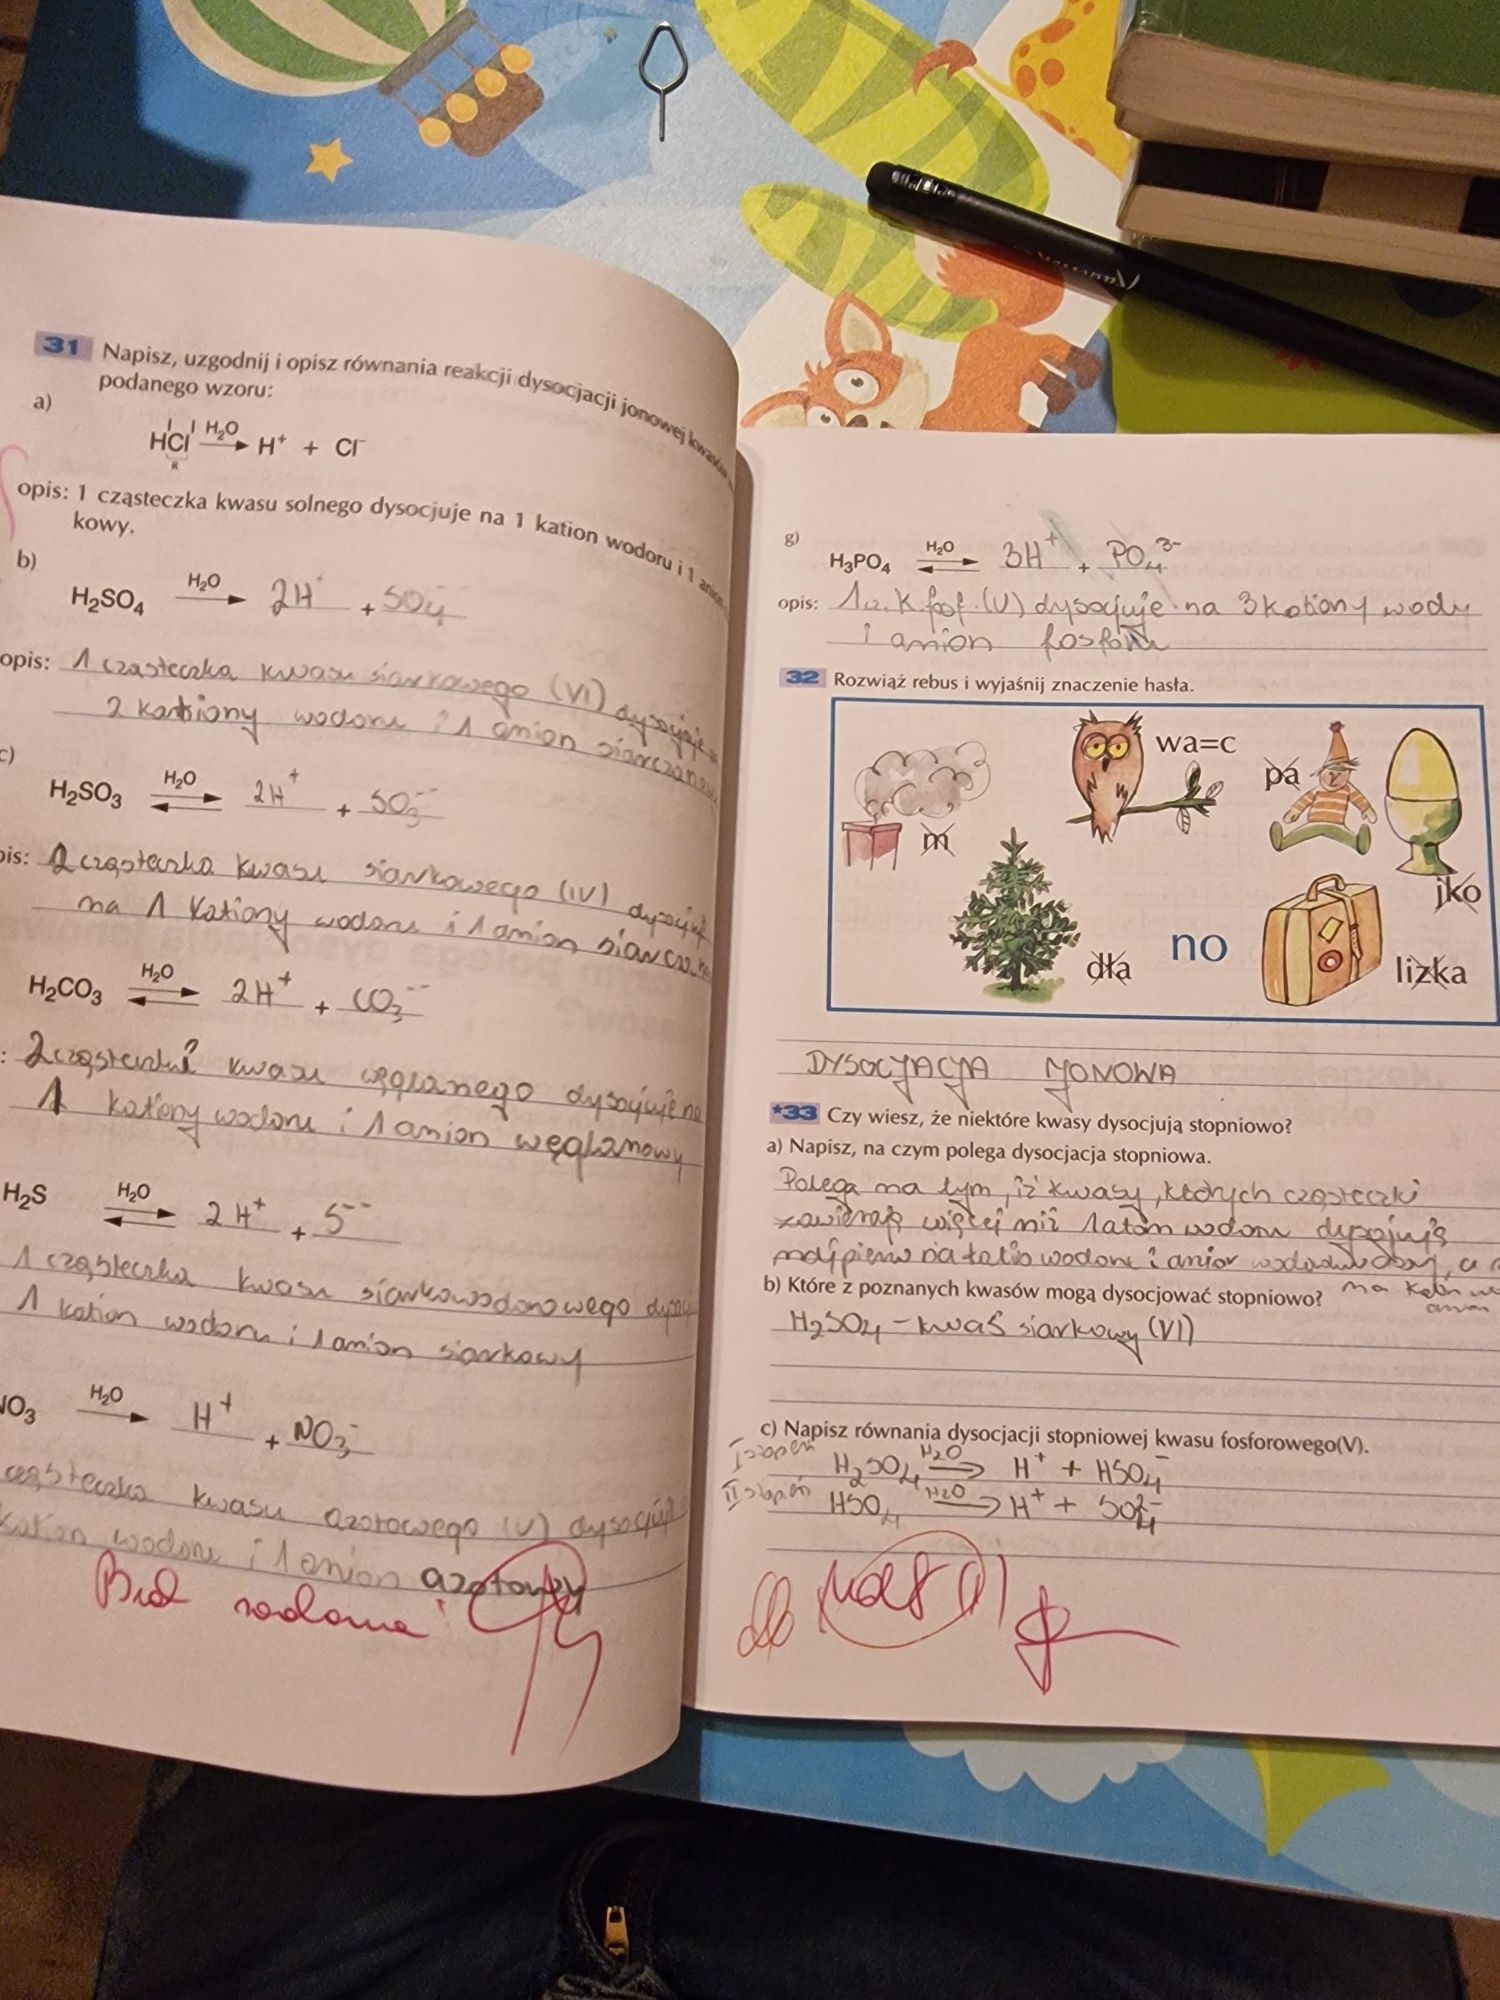 31 Napisz, uzgodnij i opisz równania reakcji dysocjacji jonowej kwasów
podanego wzoru:
a)
HCl H₂O → H⁺ + Cl⁻
R
opis: 1 cząsteczka kwasu solnego dysocjuje na 1 kation wodoru i 1 anion
kowy.
b)
H₂SO₄ H₂O → 2H⁺ + SO₄
opis: 1 cząsteczka kwasu siarkowego (VI) dysocjuje
2 kationy wodoru i 1 anion
c)
H₂SO₃ H₂O ⇄ 2H⁺ + SO₃⁻⁻
pis: cząsteczka kwasu siarkowego (IV)
na 1 kationy wodoru i 1 anion
H₂CO₃ H₂O ⇄ 2H⁺ + CO₃⁻⁻
: kwasu węglanego dysocjuje na
1 kationy wodoru i 1 anion węglanowy
H₂S H₂O ⇄ 2H⁺ + S⁻⁻
1 cząsteczka kwasu siarkowodorowego
1 kation wodoru i 1 anion siarkowy
NO₃ H₂O → H⁺ + NO₃⁻
kwasu azotowego (V) dysocjuje
kation wodoru i 1 anion azotowy
Brak
g)
H₃PO₄ H₂O ⇄ 3H⁺ + PO₄³⁻
opis: 1 cz. k. fosf. (V) dysocjuje na 3 kationy wody
i anion
32 Rozwiąż rebus i wyjaśnij znaczenie hasła.
m
wa=c
pa
jko
dła
no
lizka
DYSOCJACJA JONOWA
*33 Czy wiesz, że niektóre kwasy dysocjują stopniowo?
a) Napisz, na czym polega dysocjacja stopniowa.
Polega na tym, iż kwasy, których cząsteczki
zawierają więcej niż 1 atom wodoru dysocjują
wodoru i anion
b) Które z poznanych kwasów mogą dysocjować stopniowo?
na
H₂SO₄ - kwas siarkowy (VI)
c) Napisz równania dysocjacji stopniowej kwasu fosforowego(V).
I stopień H₂SO₄ H₂O → H⁺ + HSO₄⁻
II stopień HSO₄ H₂O → H⁺ + SO₄²⁻